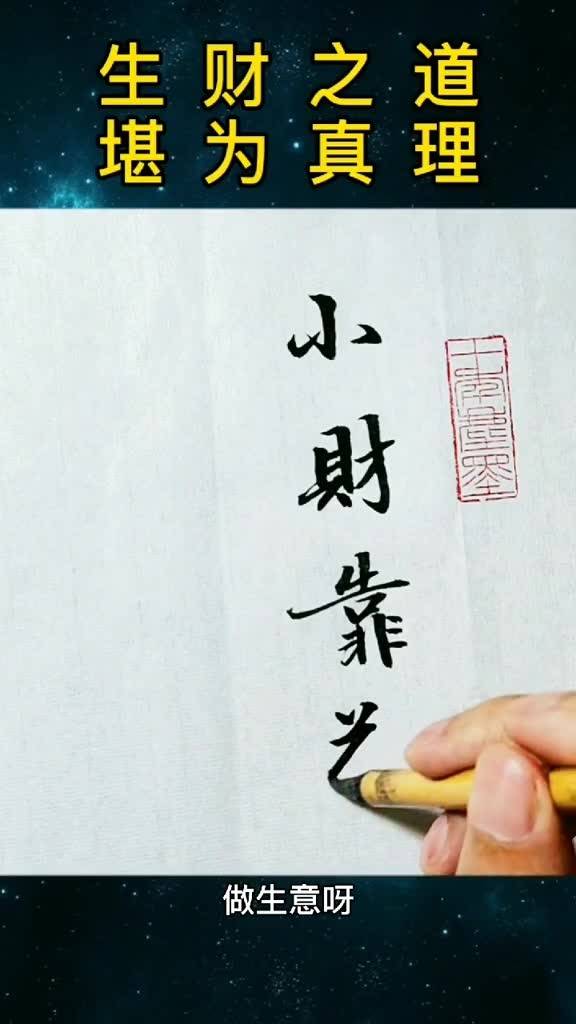 生财之道
堪为真理
小財靠
做生意呀